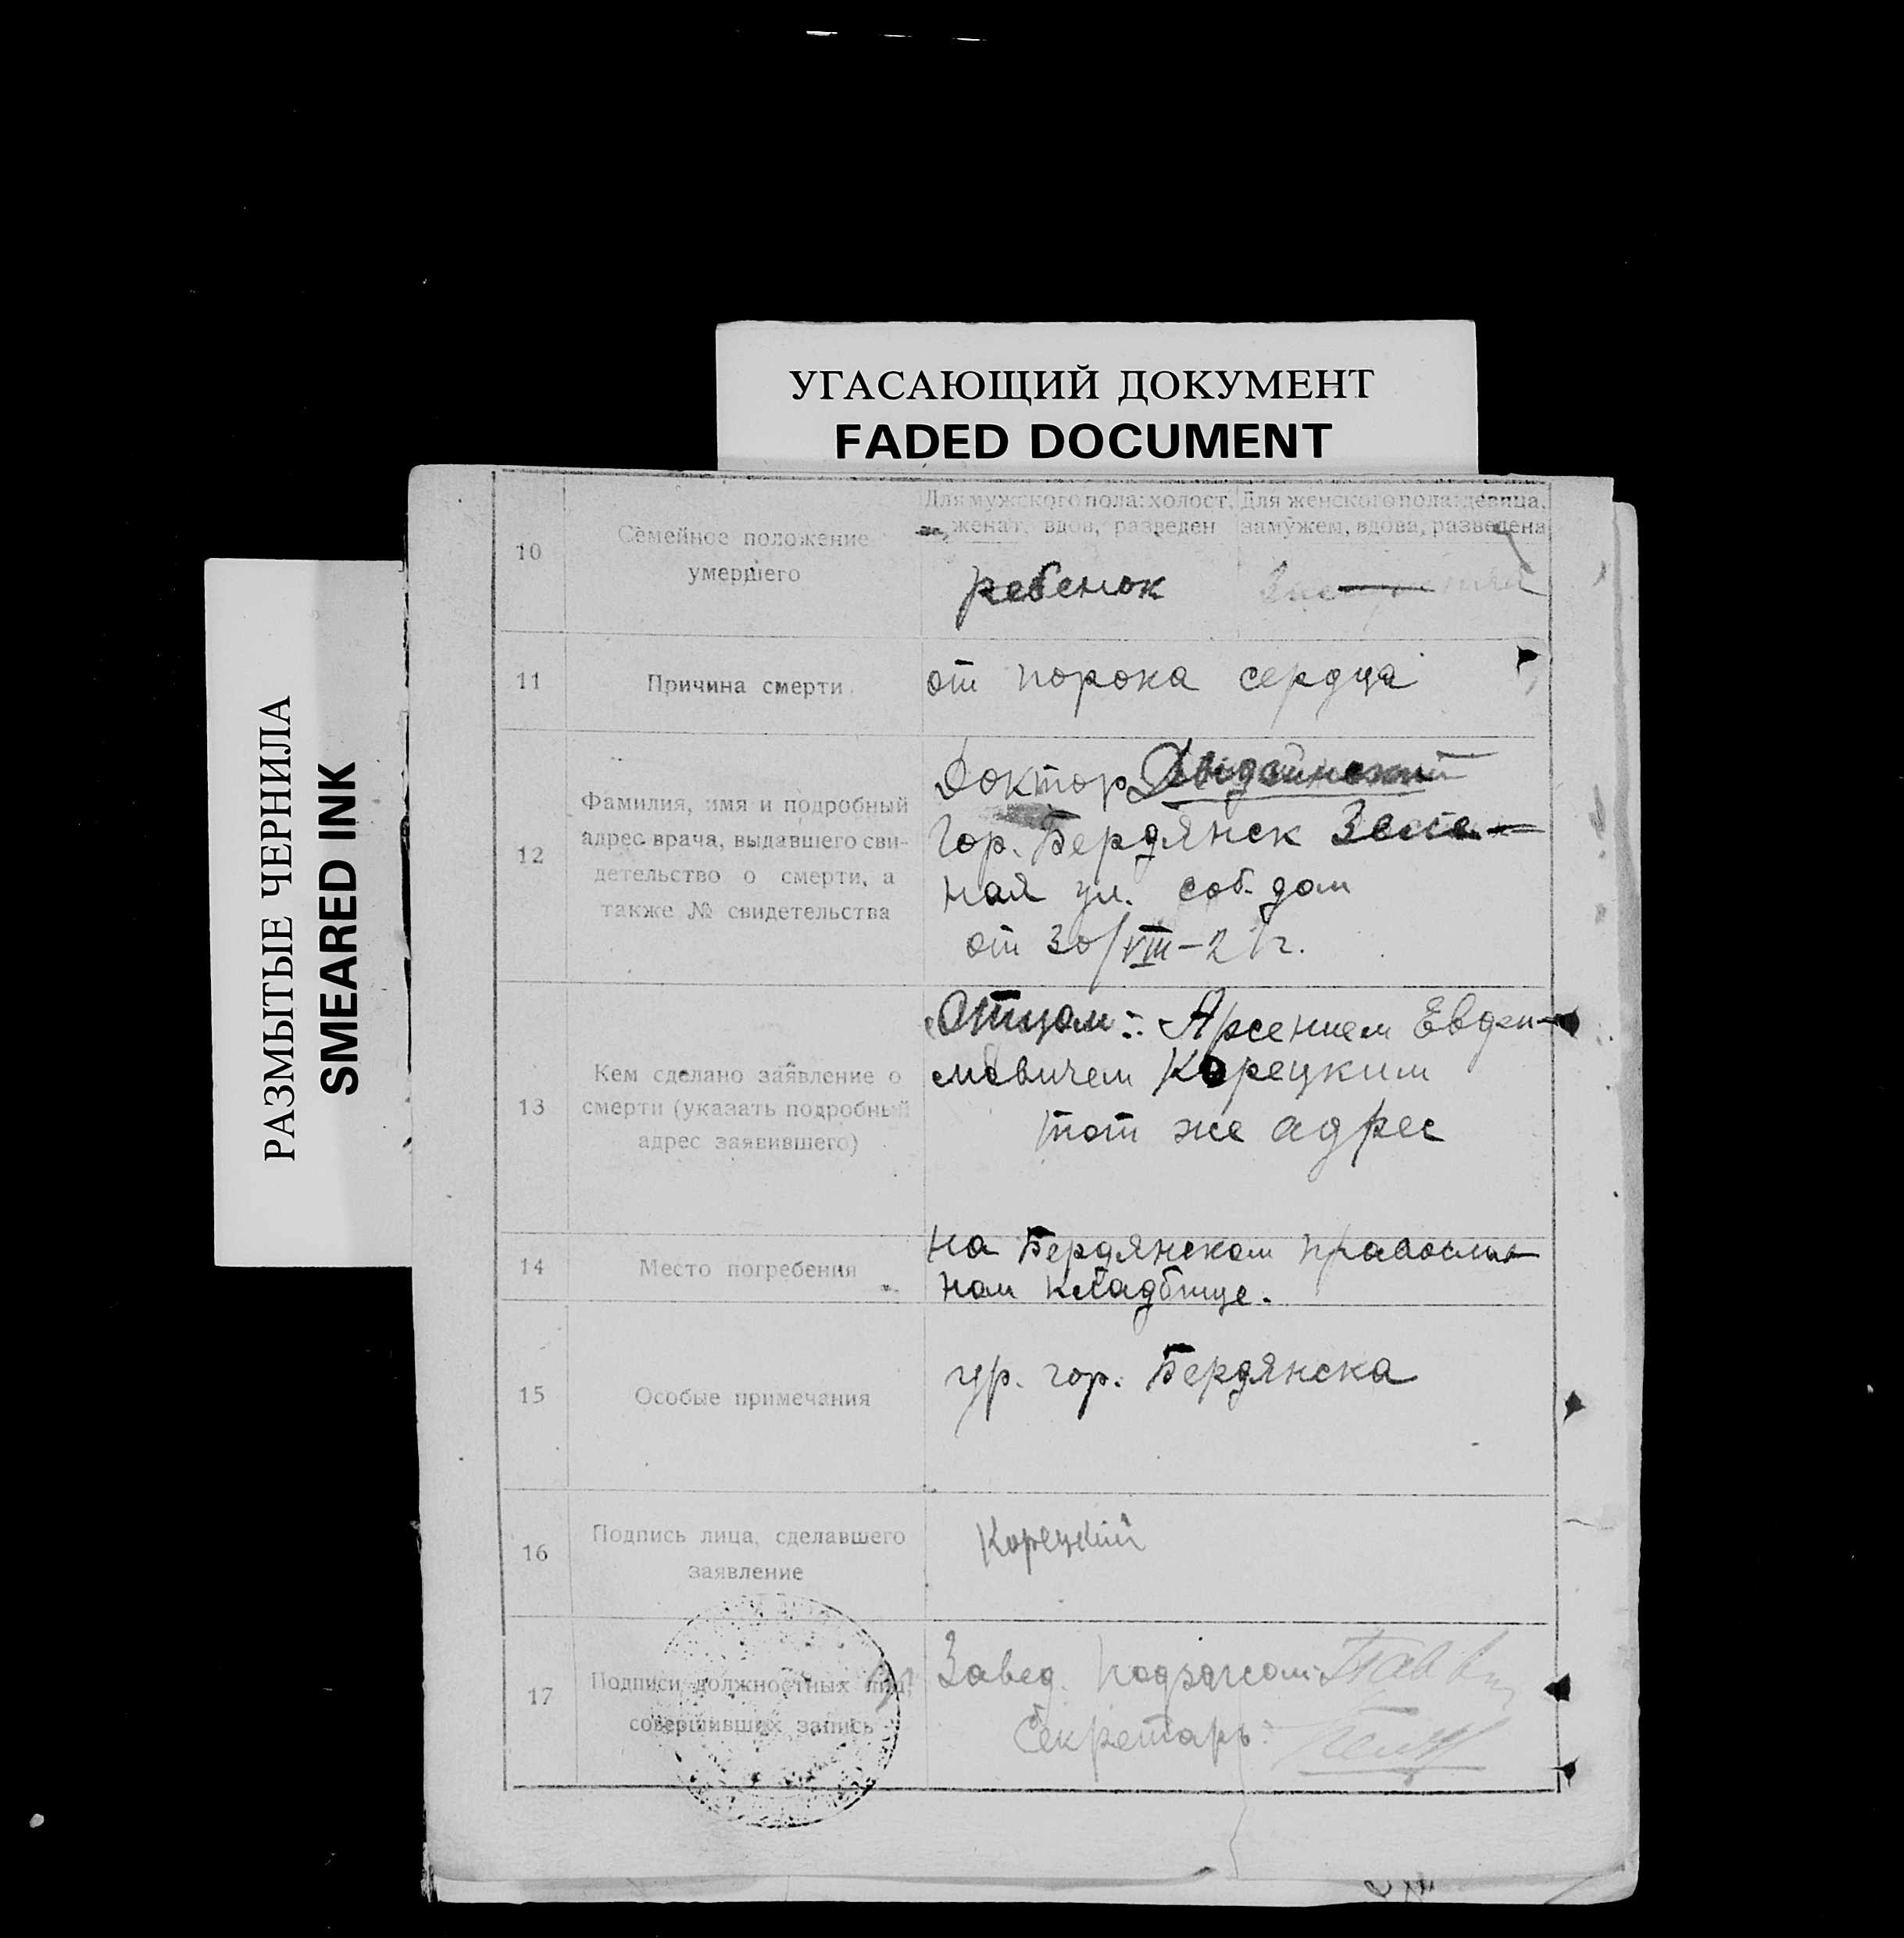 УГАСАЮЩИЙ ДОКУМЕНТ
FADED DOCUMENT
РАЗМЫТЫЕ ЧЕРНИЛА
SMEARED INK
10
Семейное положение
умершего
Для мужского пола: холост,
женат, вдов, разведен
Для женского пола: девица,
замужем, вдова, разведена
ребенок
11
Причина смерти
от порока сердца
12
Фамилия, имя и подробный
адрес врача, выдавшего сви-
детельство о смерти, а
также № свидетельства
Доктор
Гор. Бердянск
ная ул. соб. дом
от 30/VIII–21г.
13
Кем сделано заявление о
смерти (указать подробный
адрес заявившего)
Отцом: Арсением Евдо-
мовичем Корецким
тот же адрес
14
Место погребения
на Бердянском православ
ном кладбище.
15
Особые примечания
ур. гор. Бердянска
16
Подпись лица, сделавшего
заявление
Корецкий
17
Подписи должностных лиц,
совершивших запись
Завед. Подзагсом
Секретарь: